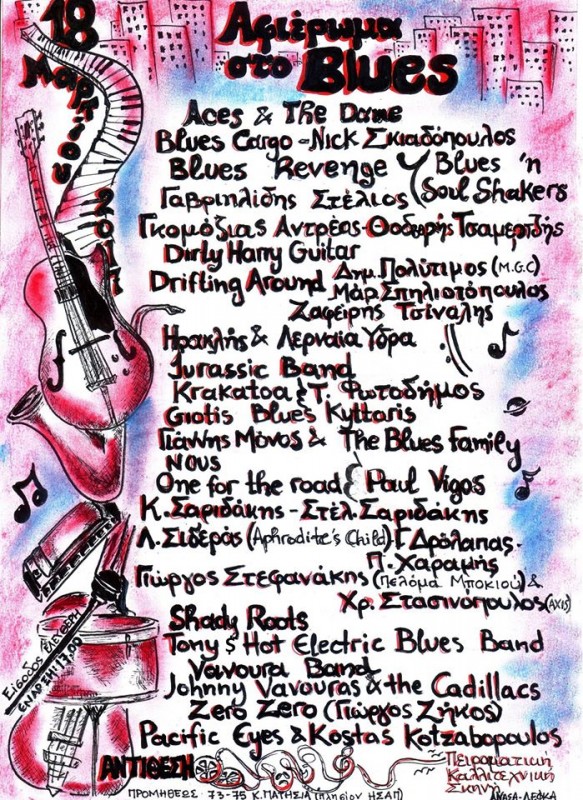 18 Μαρτίου 2017
Αφιέρωμα
στο Blues
Aces & The Dame
Blues Cargo - Nick Σκιαδόπουλος
Blues Revenge
Blues 'n
Soul Shakers
Γαβριηλίδης Στέλιος
Γκομόζιας Αντρέας - Θοδωρής Τσαμερτζής
Dirty Harry Guitar
Drifting Around
Δημ. Πολύτιμος (M.G.C)
Μαρ. Σπηλιοτόπουλος
Ζαφείρης Τσίναλης
Ηρακλής & Λερναία Υδρα
Jurassic Band
Krakatoa & Τ. Φωτοδήμος
Giotis Blues Kyttaris
Γιάννης Μόνος & The Blues Family
Nous
One for the road & Paul Vigos
Κ. Σαριδάκης - Στέλ. Σαριδάκης
Λ. Σιδεράς (Aphrodite's Child) - Γ. Δρόλαπας -
Π. Χαραμής
Γιώργος Στεφανάκης (Πελόμα Μποκιού) &
Χρ. Στασινόπουλος (AXIS)
Shady Roots
Tony's Hot Electric Blues Band
Vavoura Band
Johnny Vavouras & the Cadillacs
Zero Zero (Γιώργος Ζήκος)
Pacific Eyes & Kostas Kotzabopoulos
Είσοδος ΕΛΕΥΘΕΡΗ
ΕΝΑΡΞΗ 17:00
ΑΝΤΙΘΕΣΗ
Πειραματική
Καλλιτεχνική
Σκηνή
ΠΡΟΜΗΘΕΩΣ 73-75 Κ. ΠΑΤΗΣΙΑ (ΠΛΗΣΙΟΝ ΗΣΑΠ)